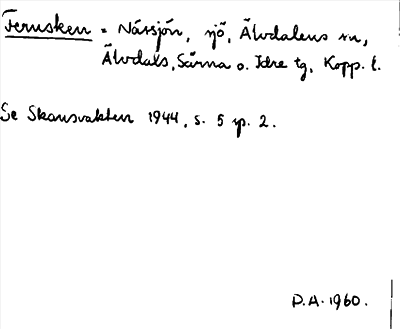 Fernsken = Nässjön, sjö, Älvdalens sn,
Älvdals, Särna o. Idre tg, Kopp. l.
Se Skansvakten 1944, s. 5 sp. 2.
P.A. 1960.